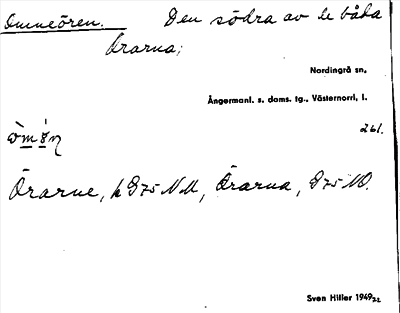 Omneören. Den södra av de båda
Örarna;
Nordingrå sn,
Ångermanl. s. doms. tg., Västernorrl. l.
261.
Örarne, k G75 NM, Örarna, G75 NO.
Sven Hiller 1949